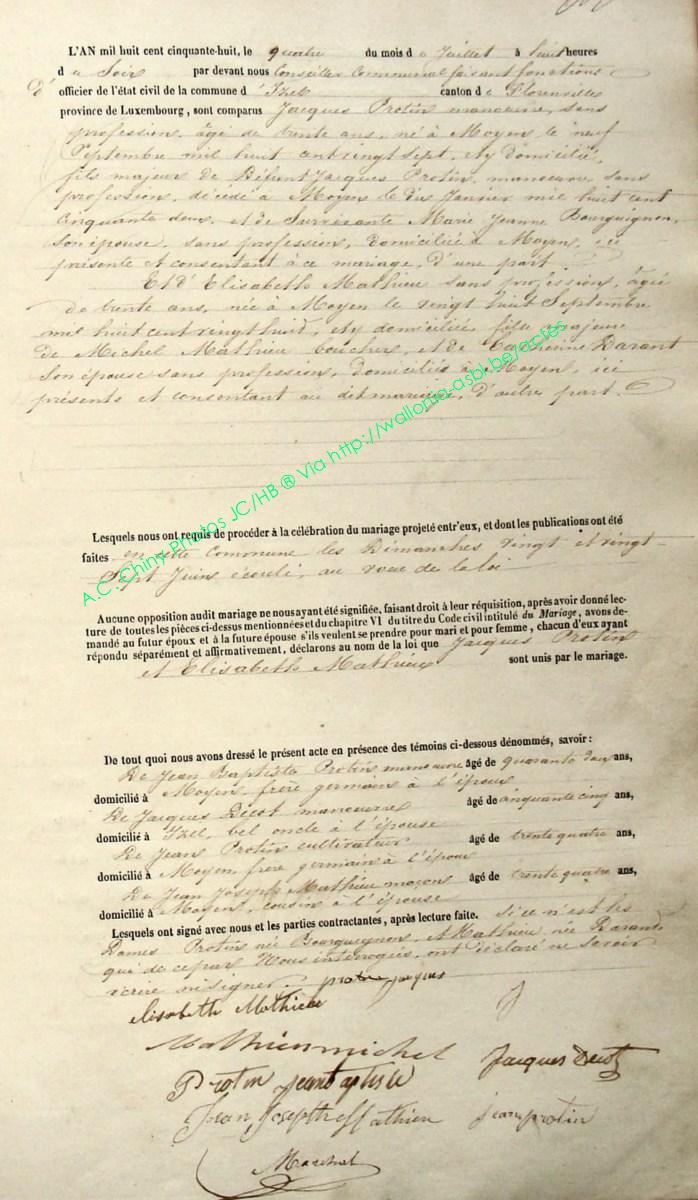 L'AN mil huit cent cinquante-huit, le quatre du mois de Juillet à huit heures
de Soir par devant nous Conseiller Communal faisant fonctions d'
officier de l'état civil de la commune d'Izel canton de Florenville
province de Luxembourg, sont comparus Jacques Protin manoeuvre, sans
profession, âgé de trente ans, né à Moyen le neuf
Septembre mil huit cent vingt sept, et y domicilié,
fils majeur de Défunt Jacques Protin, manoeuvre, sans
profession, décédé à Moyen le dix Janvier mil huit cent
Cinquante deux, et de Survivante Marie Jeanne Bourguignon,
Son épouse, sans profession, domiciliée à Moyen, ici
présente et consentant à ce mariage, d'une part.
Et d'Elisabeth Mathieu sans profession, âgée
de trente ans, née à Moyen le vingt huit Septembre
mil huit cent vingt huit, et y domiciliée, fille majeure
de Michel Mathieu boucher, et de Catherine Darant
Son épouse sans profession, domiciliés à Moyen, ici
présents et consentant au dit mariage, d'autre part.
A.C. Chiny Photos JC/HB ® Via http://wallonia-asbl.be/actes
Lesquels nous ont requis de procéder à la célébration du mariage projeté entr'eux, et dont les publications ont été
faites en cette Commune les Dimanches vingt et vingt-
Sept Juin écoulé, au voeu de la loi
Aucune opposition audit mariage ne nous ayant été signifiée, faisant droit à leur réquisition, après avoir donné lec-
ture de toutes les pièces ci-dessus mentionnées et du chapitre VI du titre du Code civil intitulé du Mariage, avons de-
mandé au futur époux et à la future épouse s'ils veulent se prendre pour mari et pour femme, chacun d'eux ayant
répondu séparément et affirmativement, déclarons au nom de la loi que Jacques Protin
et Elisabeth Mathieu sont unis par le mariage.
De tout quoi nous avons dressé le présent acte en présence des témoins ci-dessous dénommés, savoir:
De Jean Baptiste Protin manoeuvre âgé de quarante deux ans,
domicilié à Moyen, frère germain à l'époux
De Jacques manoeuvre âgé de cinquante cinq ans,
domicilié à Izel, bel oncle à l'épouse
De Jean Protin cultivateur âgé de trente quatre ans,
domicilié à Moyen, frère germain à l'époux
De Jean Joseph Mathieu maçon âgé de trente quatre ans,
domicilié à Moyen, cousin à l'épouse
Lesquels ont signé avec nous et les parties contractantes, après lecture faite. Si ce n'est les
Dames Protin née Bourguignon, et Mathieu née Darant
qui de ce par Nous interrogées, ont déclaré ne Savoir
écrire ni signer. protin jacques
elisabeth Mathieu
Mathieu michel Jacques
Protin jean baptiste
Jean Joseph Mathieu jean protin
Maréchal